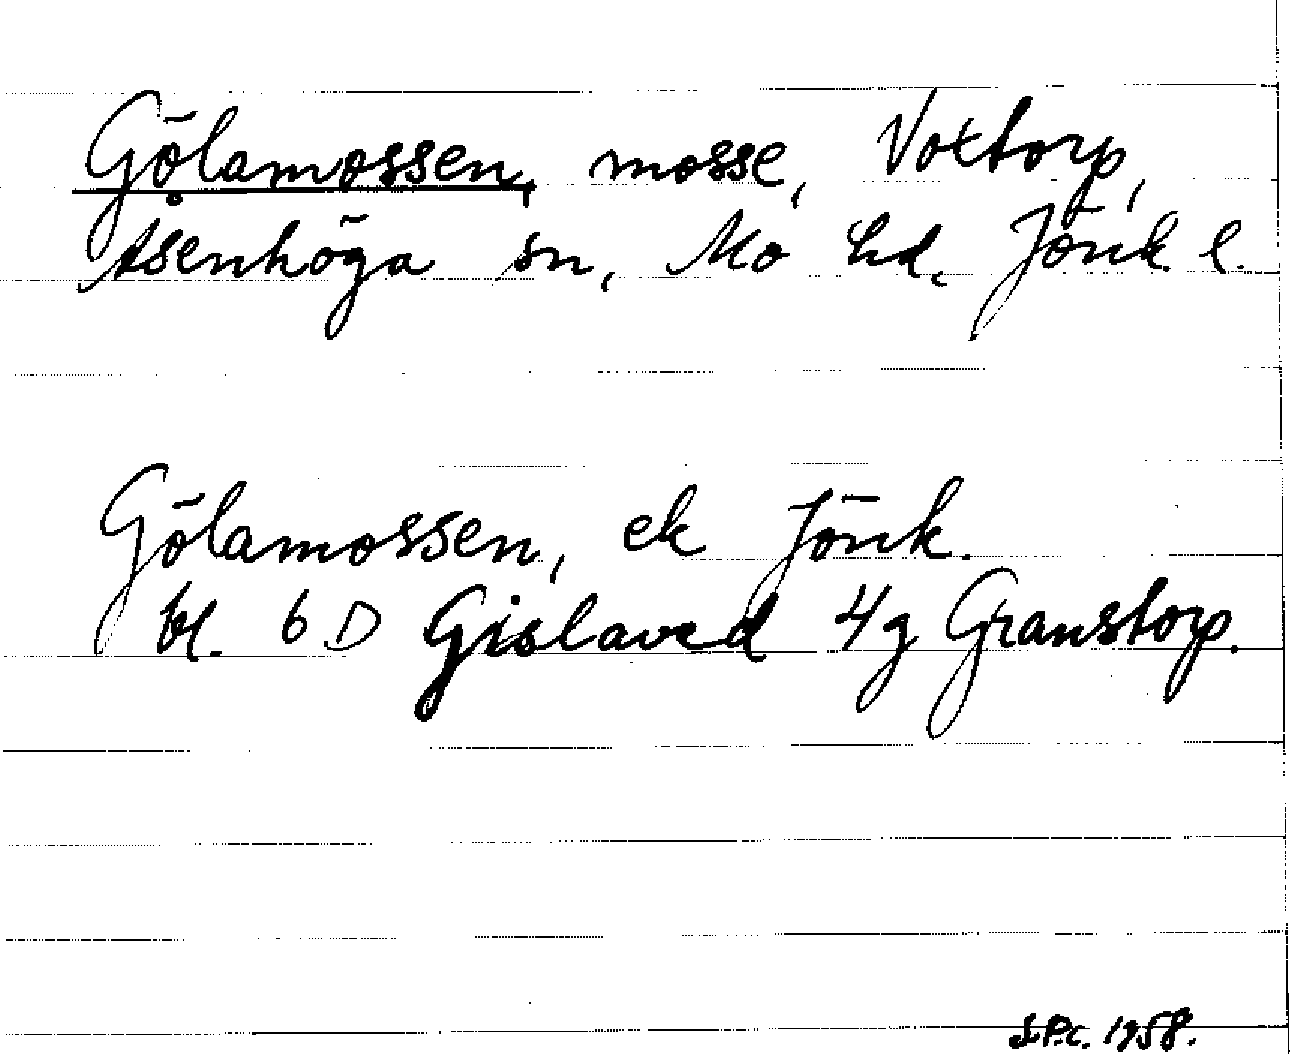 Gölamossen, mosse, Voxtorp,
Åsenhöga sn, Mo hd. Jönk. l.
Gölamossen, ek Jönk.
bl. 6 D Gislaved 4g Granstorp.
S.P.c. 1958.